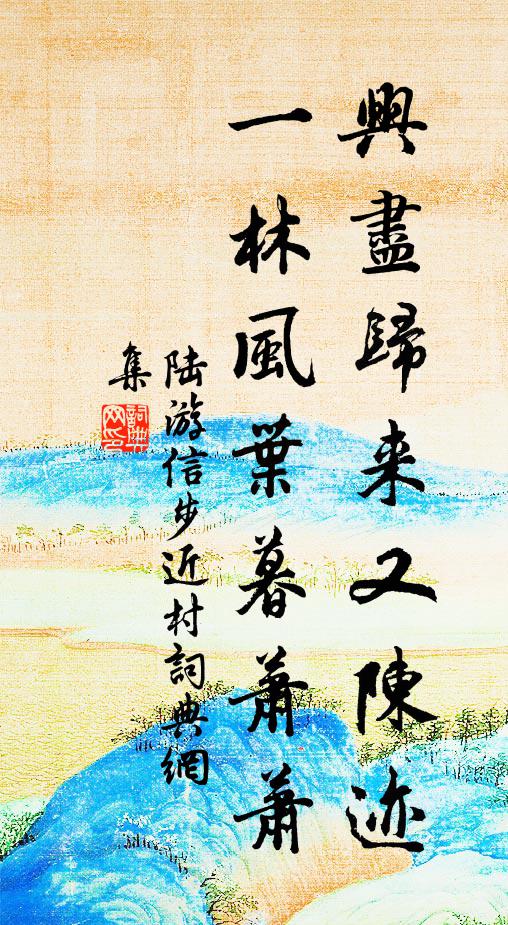 興盡歸来又陳迹
一林風葉暮蕭蕭
陆游信步近村詞典網
集
詞典网印